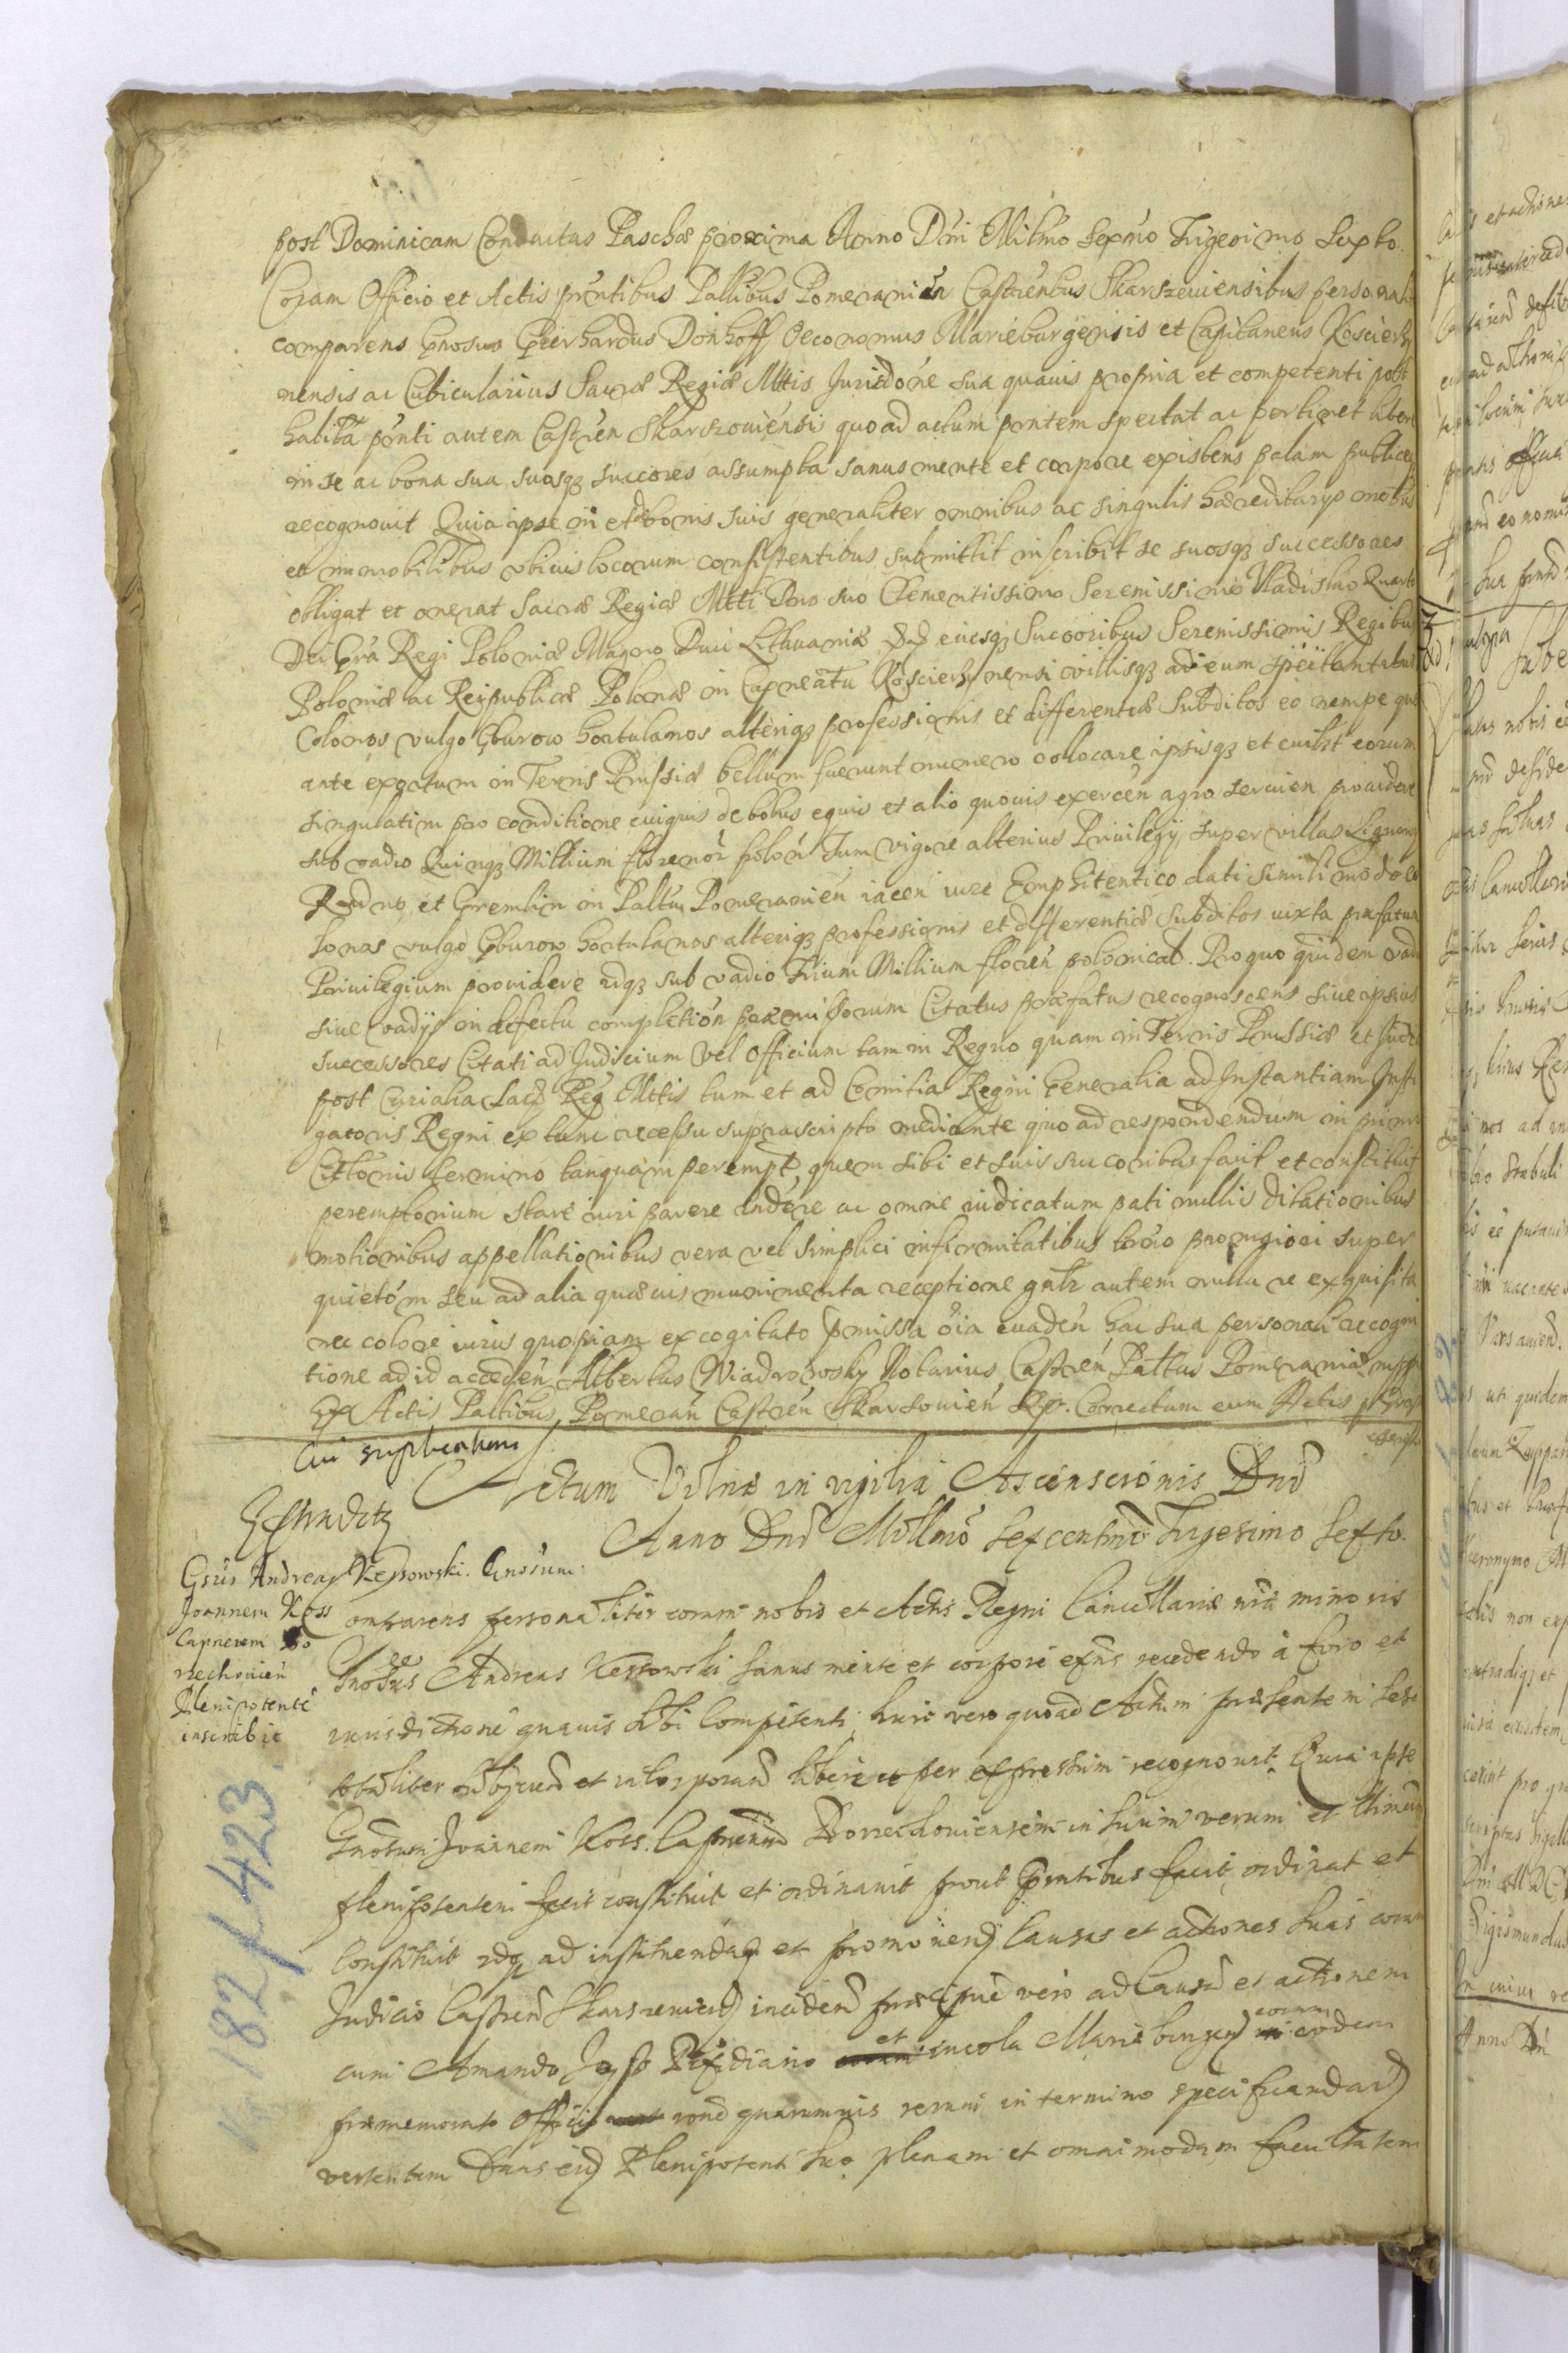 post Dominicam Conductus Paschæ proxima Anno Dni Mllmo Sexmo Trigesimo Sexto.
Coram Officio et Actis pntibus Palltbus Pomeranien Castrenbus Skarszeviensibus personalr
comparens Gnosus Gerhardus Dönhoff Oeconomus Marieburgensis et Capitaneus Koscierz
nensis ac Cubicularius Sacræ Regiæ Mttis Jurisdone sua quavis propria et competenti post
habita pnti autem Castren Skarszoviensi quo ad actum pntem spectat ac pertinet libere
in se ac bona sua suosq succores assumpta sanus mente et corpore existens palam publiceq
recognovit Quia ipse in et de bonis suis generaliter omnibus ac singulis hæreditarijs mobus
et immobilibus ubivis locorum consistentibus submittit inscribit se suosq successores
obligat et onerat Sacræ Regiæ Mtti Dno suo Clementissimo Serenissimo Vladislao Quarto
Dei Gra Regi Poloniæ Magno Duci Lithuaniæ eiusq Succoribus Serenissimis Regibus
Poloniæ ac Reipublicæ Polonæ in Capneatu Koscierznensi villisq ad eum spectantibus
Colonos vulgo Gburow hortulanos alteriq professionis et differentiæ Subditos eo nempe quo
ante exortum in Terris Prussiæ bellum fuerunt numero collocare ipsisq et cuilbt eorum
singulatim pro conditione cuiqvis de bobus equis et alio quovis exercen agro servien providere
sub vadio Quinq Millium florenor polon Tum vigore alterius Privilegÿ super villas Lignowy
Rudno et Gremlin in Palltu Pomeranien iacen iure Emphitentico dati simili modo Co
lonos vulgo Gburow hortulanos alteriq professionis et differentiæ Subditos iuxta præfatum
Privilegium providere idq sub vadio Trium Millium floren polonical. Pro quo quidem vadio
sive vadijs in defectu completion præmissorum Citatus præfatus recognoscens sive ipsius
successores Citati ad Judicium vel Officium tam in Regno quam in Terris Prussiæ et Judi
post Curialia Sac Reg Mttis tum et ad Comitia Regni Generalia ad Instantiam Insti
gatoris Regni ex tunc recessu suprascripto mediante quo ad respondendum in primo
Cittonis termino tanquam perempt, quem sibi et suis succoribus facit et constituit
peremptorium stare iuri parere ac omne iudicatum pati nullis dilationibus
motionibus appellationibus vera vel simplici infirmitatibus super
quietom seu ad alia quævis munimenta receptione gnlr autem nulla re exquisita
nec colore iuris quopiam excogitato pmissa oia evaden hac sua personali recogni
tione ad id acceden Albertus Wiadrowsky Notarius Castren Palltus Pomeraniæ mppr
Ex Actis Palltibus Pomeran Castren Skarsovien Rp. Correctum cum Actis
Cui supplicatum
Actum Vilnæ in vigilia Ascensionis Dni
Anno Dni Millmo Sexcentmo Trigesimo Sexto.
Gsus Andreas Kessowski. Gnosum
Joannem Koss
Capneum Bo
rzechovien
Plenipotente
inscribit
Comparens personaliter coram nobis et Actis Regni Cancellariæ nræ minoris
Gnosus Andreas Kessowski sanus mente et corpore exns recedendo à foro et
iurisdictione quavis sibi competenti, huic vero quoad Actum præsentem sese
totaliter subÿciend et incorporand libere et per expressum recognovit. Quia ipse
Gnosum Joannem Koss. Capneum Borzechoviensem in suum verum et Ittimum
plenipotentem fecit constituit et ordinavit prout pntibus facit, ordinat et
constituit idq ad instituendas et promovend Causas et actiones suas coram
Judicio Castren Skarszevien inciden præcipue vero ad Causam et actionem
cum Amando Præsidiario et incola Mariæburgen coram eodem
præmemorato Officio rone quarumvis rerum in termino specificandar
vertentem Dans eid Plenipotenti suo plenam et omnimodam facultatem
182/423